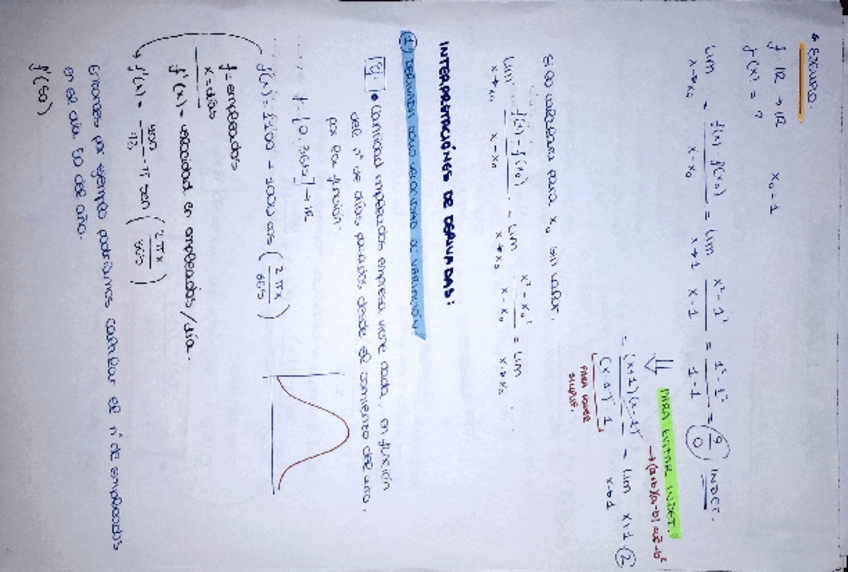 EJEMPLO:
f: ℝ → ℝ    x₀ = 1
f(x) = ?
lim x→x₀ = f(x) - f(x₀) / x - x₀ = lim x→1 x² - 1² / x - 1 = 1² - 1² / 1 - 1 = 0/0 INDET.
PARA EVITAR INDET. → (a+b)(a-b) = a² - b²
= (x+1)(x-1) / (x-1) · 1 = lim x→1 x+1 = 2
PARA PODER SIMPLIF.
para x₀ sin valor.
lim x→x₀ f(x) - f(x₀) / x - x₀ = lim x→x₀ x² - x₀² / x - x₀ = lim x→x₀
INTERPRETACIÓNES DE DERIVADAS:
1) DERIVADA COMO VELOCIDAD DE VARIACIÓN:
Ej: Cantidad empleados empresa viene dada, en función
del nº de días pasados desde el comienzo del año,
por la función:
f: [0, 365] → ℝ
cos (2πx / 365)
f = empleados
x = días
f'(x) = velocidad en empleados / día.
f'(x) = π sen (2πx / 365)
Entonces por ejemplo podríamos calcular el nº de empleados
en el día 50 del año.
f'(50)